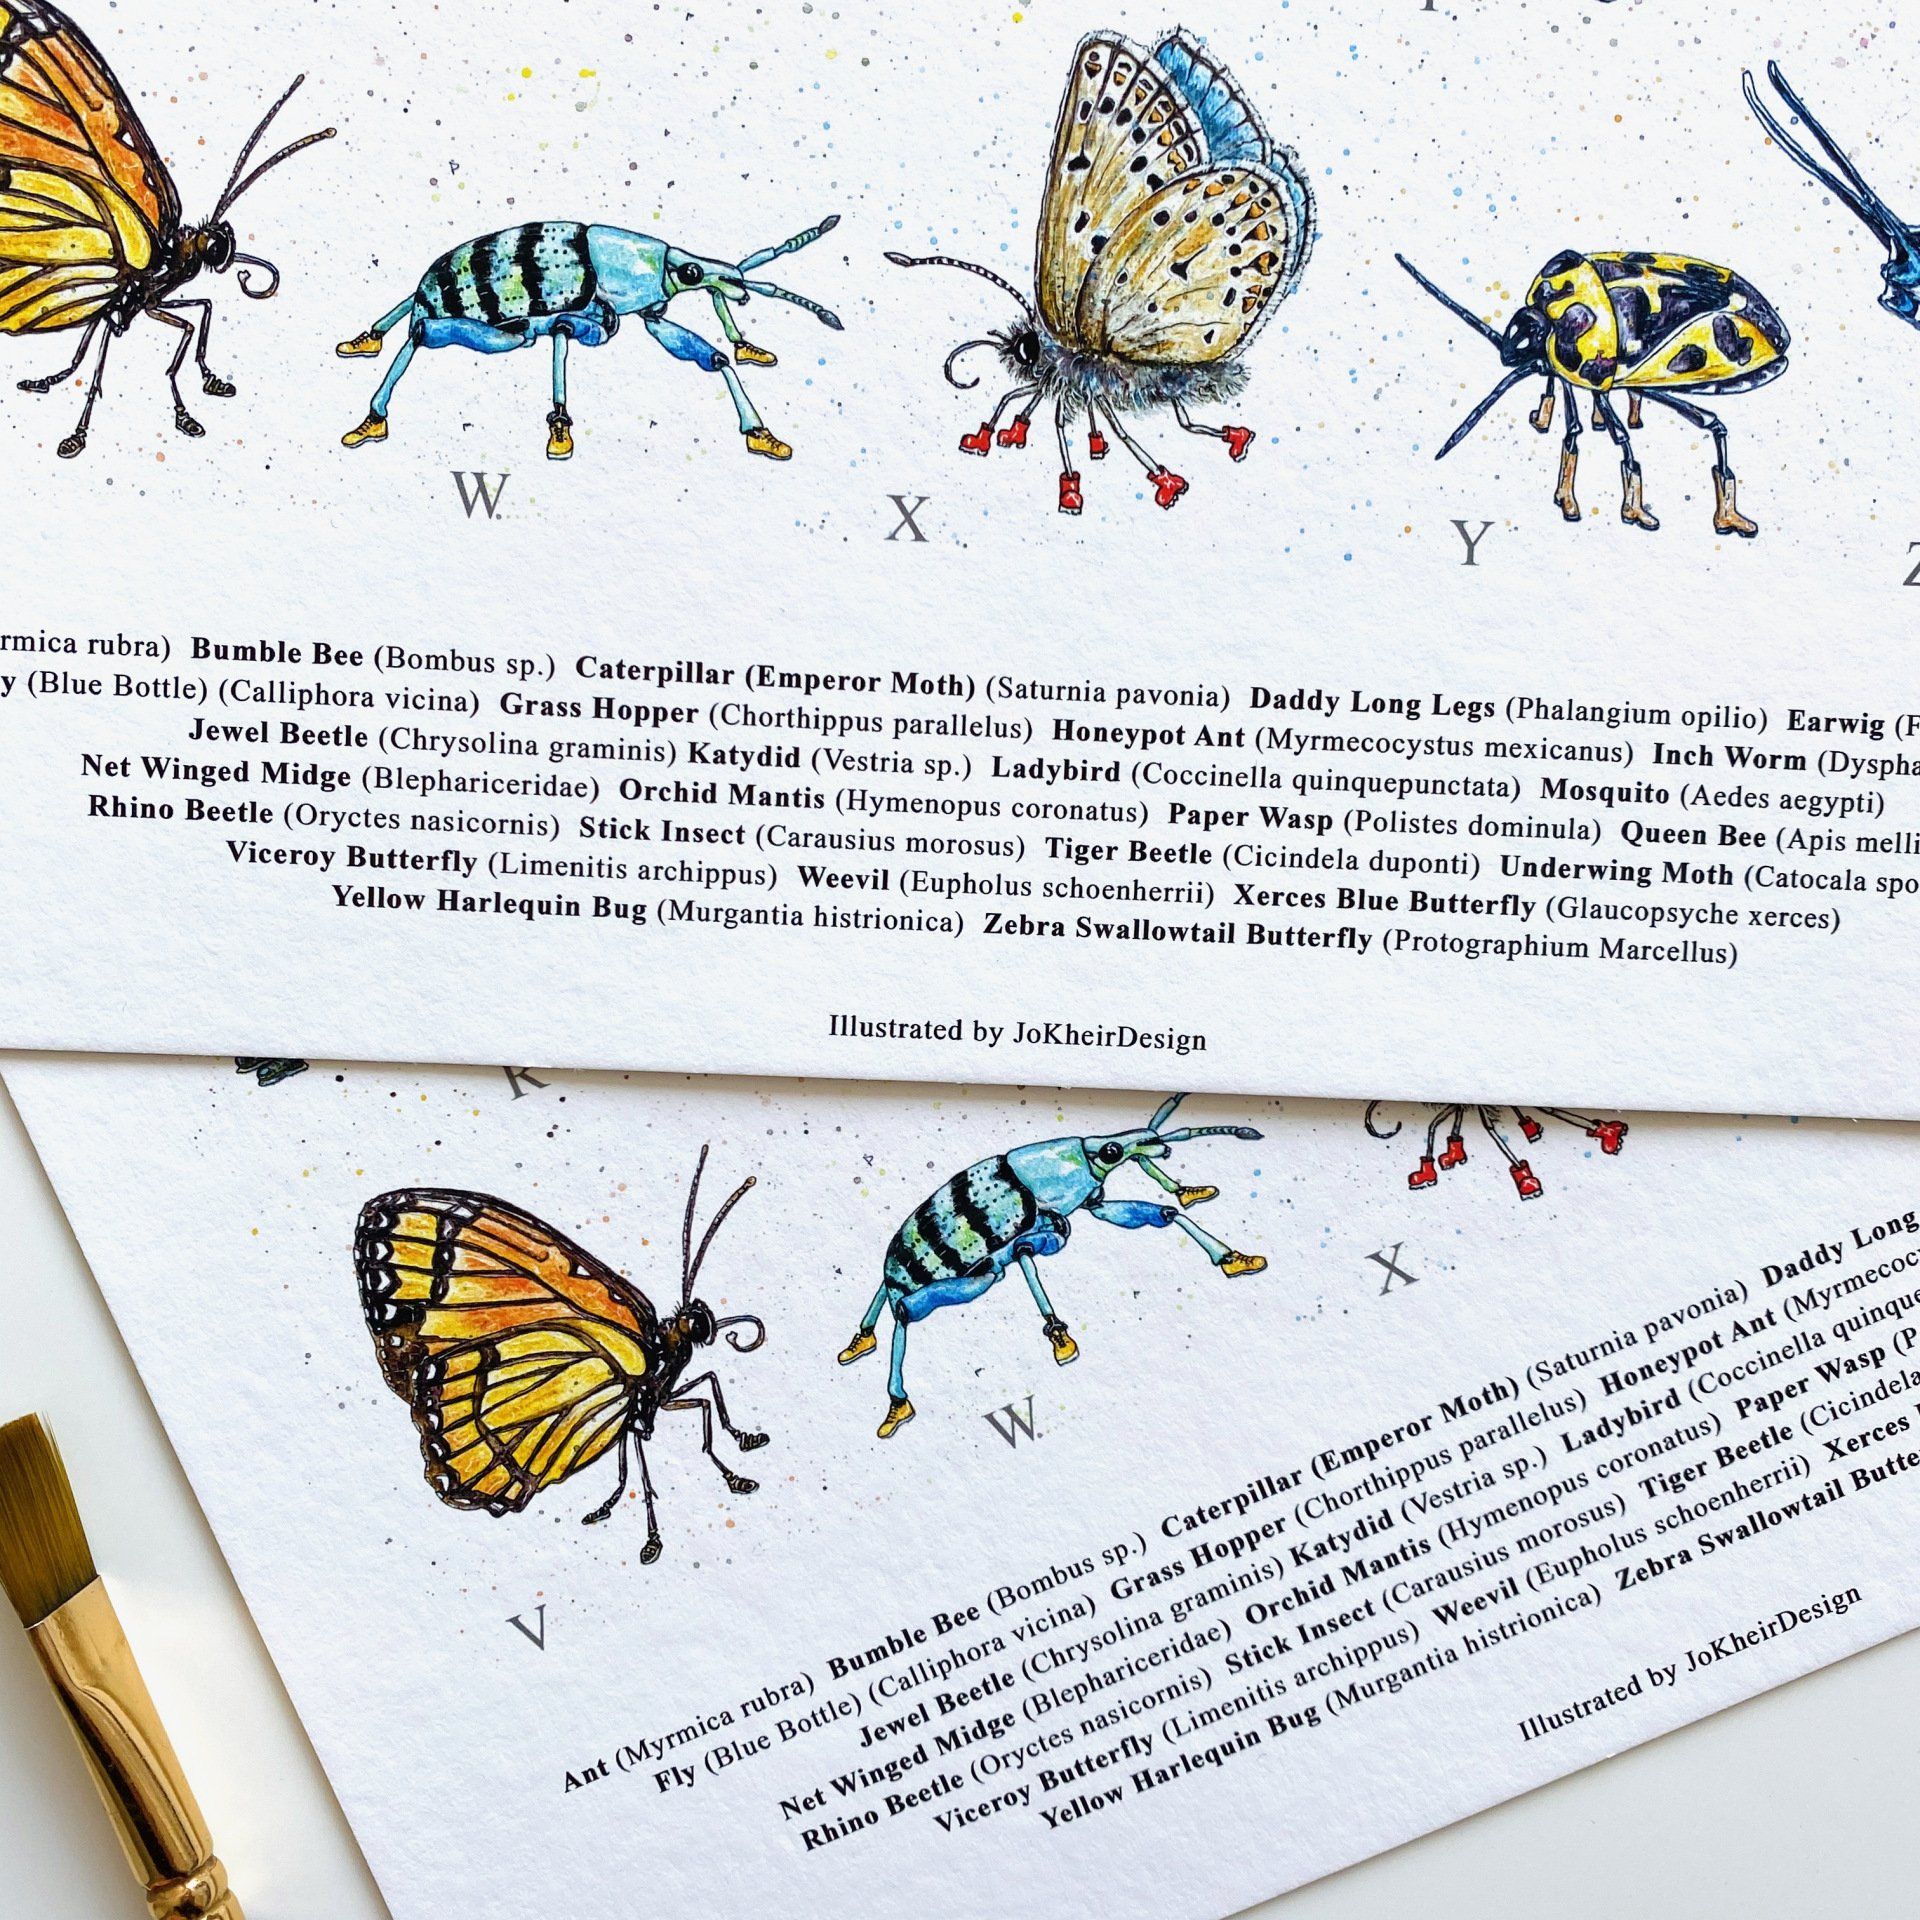 W
X
Y
Z
rmica rubra) Bumble Bee (Bombus sp.) Caterpillar (Emperor Moth) (Saturnia pavonia) Daddy Long Legs (Phalangium opilio) Earwig (F
y (Blue Bottle) (Calliphora vicina) Grass Hopper (Chorthippus parallelus) Honeypot Ant (Myrmecocystus mexicanus) Inch Worm (Dyspha
Jewel Beetle (Chrysolina graminis) Katydid (Vestria sp.) Ladybird (Coccinella quinquepunctata) Mosquito (Aedes aegypti)
Net Winged Midge (Blephariceridae) Orchid Mantis (Hymenopus coronatus) Paper Wasp (Polistes dominula) Queen Bee (Apis melli
Rhino Beetle (Oryctes nasicornis) Stick Insect (Carausius morosus) Tiger Beetle (Cicindela duponti) Underwing Moth (Catocala spo
Viceroy Butterfly (Limenitis archippus) Weevil (Eupholus schoenherrii) Xerces Blue Butterfly (Glaucopsyche xerces)
Yellow Harlequin Bug (Murgantia histrionica) Zebra Swallowtail Butterfly (Protographium Marcellus)
Illustrated by JoKheirDesign
R
V
W
X
Ant (Myrmica rubra) Bumble Bee (Bombus sp.) Caterpillar (Emperor Moth) (Saturnia pavonia) Daddy Long
Fly (Blue Bottle) (Calliphora vicina) Grass Hopper (Chorthippus parallelus) Honeypot Ant (Myrmecoc
Jewel Beetle (Chrysolina graminis) Katydid (Vestria sp.) Ladybird (Coccinella quinque
Net Winged Midge (Blephariceridae) Orchid Mantis (Hymenopus coronatus) Paper Wasp (P
Rhino Beetle (Oryctes nasicornis) Stick Insect (Carausius morosus) Tiger Beetle (Cicindela
Viceroy Butterfly (Limenitis archippus) Weevil (Eupholus schoenherrii) Xerces
Yellow Harlequin Bug (Murgantia histrionica) Zebra Swallowtail Butte
Illustrated by JoKheirDesign